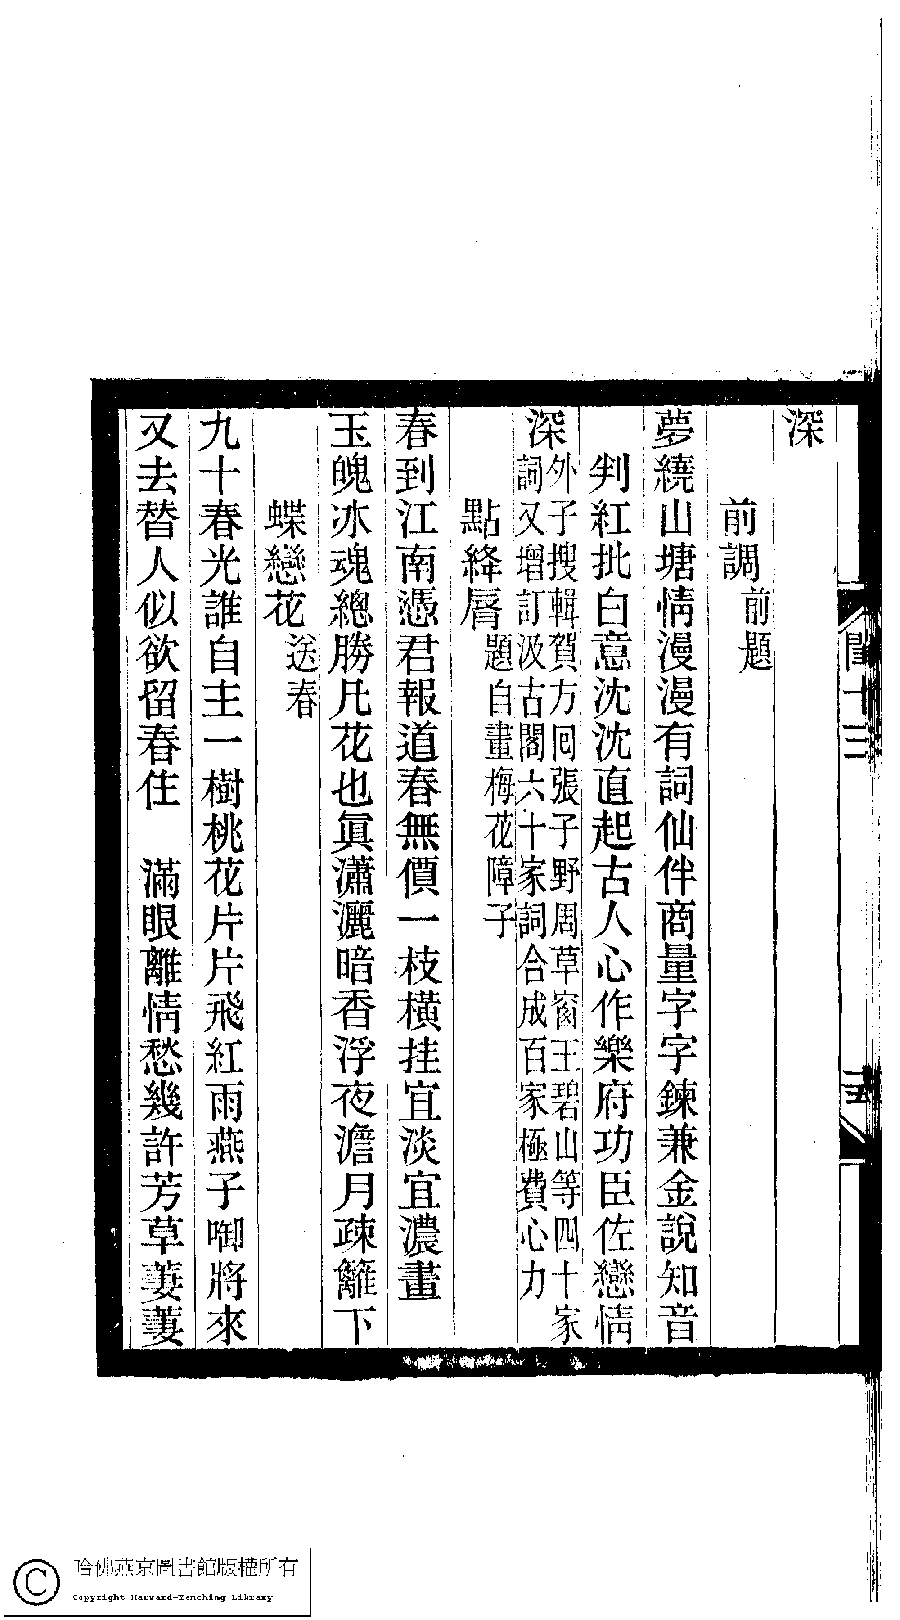 深
前調前題
夢繞山塘情漫漫有詞仙伴商量字字鍊兼金說知音
判紅批白意沈沈直起古人心作樂府功臣佐戀情
深外子搜輯賀方囘張子野周草窗王碧山等四十家
詞又增訂汲古閣六十家詞合成百家極費心力
點絳脣題自畫梅花障子
春到江南憑君報道春無價一枝橫挂宜淡宜濃畫
玉魄冰魂總勝凡花也眞瀟灑暗香浮夜澹月疎籬下
蝶戀花送春
九十春光誰自主一樹桃花片片飛紅雨燕子啣將來
又去替人似欲留春住　滿眼離情愁幾許芳草萋萋
哈佛燕京圖書館版權所有
Copyright Harvard-Yenching Library